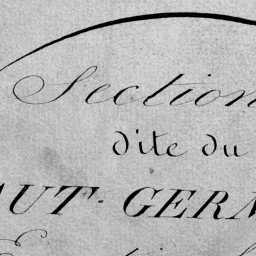 Section
dite du
AUT-GERM